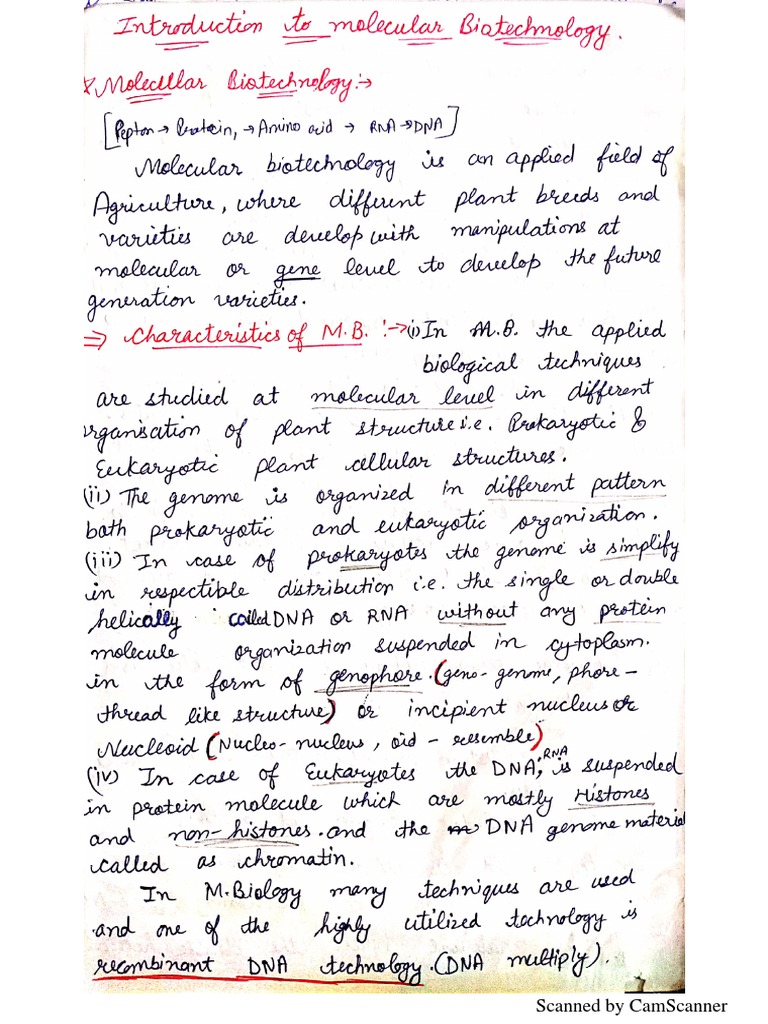 Introduction to molecular Biotechnology.
* Molecular Biotechnology :→
[Pepton → Protein, → Amino acid → RNA → DNA]
Molecular biotechnology is an applied field of
Agriculture, where different plant breeds and
varieties are develop with manipulations at
molecular or gene level to develop the future
generation varieties.
⇒ Characteristics of M.B. :→ (i) In M.B. the applied
biological techniques
are studied at molecular level in different
organisation of plant structure i.e. Prokaryotic &
Eukaryotic plant cellular structures.
(ii) The genome is organized in different pattern
both prokaryotic and eukaryotic organization.
(iii) In case of prokaryotes the genome is simplify
in respectible distribution i.e. the single or double
helically coiled DNA or RNA without any protein
molecule organization suspended in cytoplasm.
in the form of genophore. (geno- genme, phore -
thread like structure) or incipient nucleus or
Nucleoid (Nucleo- nucleus, oid - resemble)
(iv) In case of Eukaryotes the DNA, RNA is suspended
in protein molecule which are mostly Histones
and non-histones. and the DNA genome material
called as chromatin.
In M.Biology many techniques are used
and one of the highly utilized technology is
recombinant DNA technology. (DNA multiply).
Scanned by CamScanner